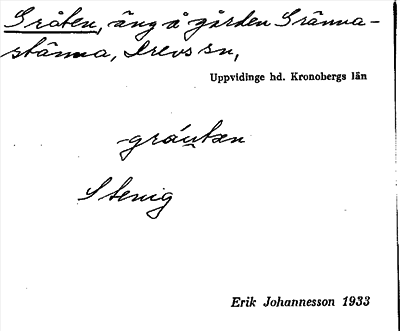 Gråten, äng å gården Gränna-
stänna, Drevs sn,
Uppvidinge hd. Kronobergs län
gráutæn
Stenig
Erik Johannesson 1933